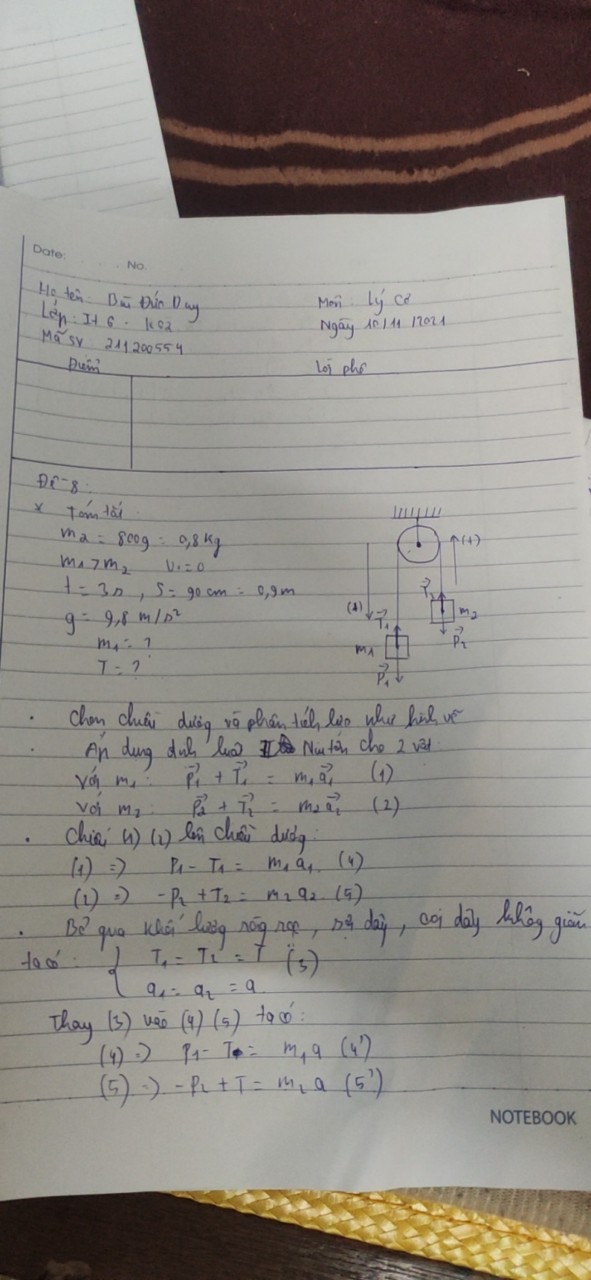 Date: . . . . . No.
Họ tên: Bùi Đức Duy Môn: Lý Cơ
Lớp: IT 6 - K62 Ngày 10/11/2021
Mã SV: 211200554
Điểm Lời phê
Đề 8:
* Tóm tắt
m2 = 800g = 0,8 kg
m1 > m2 V0 = 0
t = 3s, S = 90 cm = 0,9m
g = 9,8 m/s²
m1 = ?
T = ?
(+)
(+)
T⃗1
T⃗2
m1
m2
P⃗1
P⃗2
. Chọn chiều dương và phân tích lực như hình vẽ
. Áp dụng định luật II Niu tơn cho 2 vật
Với m1: P⃗1 + T⃗1 = m1a⃗1 (1)
Với m2: P⃗2 + T⃗2 = m2a⃗2 (2)
. Chiếu (1) (2) lên chiều dương:
(1) => P1 - T1 = m1a1 (4)
(2) => -P2 + T2 = m2a2 (5)
. Bỏ qua khối lượng ròng rọc, sợi dây, coi dây không giãn
ta có: { T1 = T2 = T (3)
a1 = a2 = a
Thay (3) vào (4) (5) ta có:
(4) => P1 - T = m1a (4')
(5) => -P2 + T = m2a (5')
NOTEBOOK